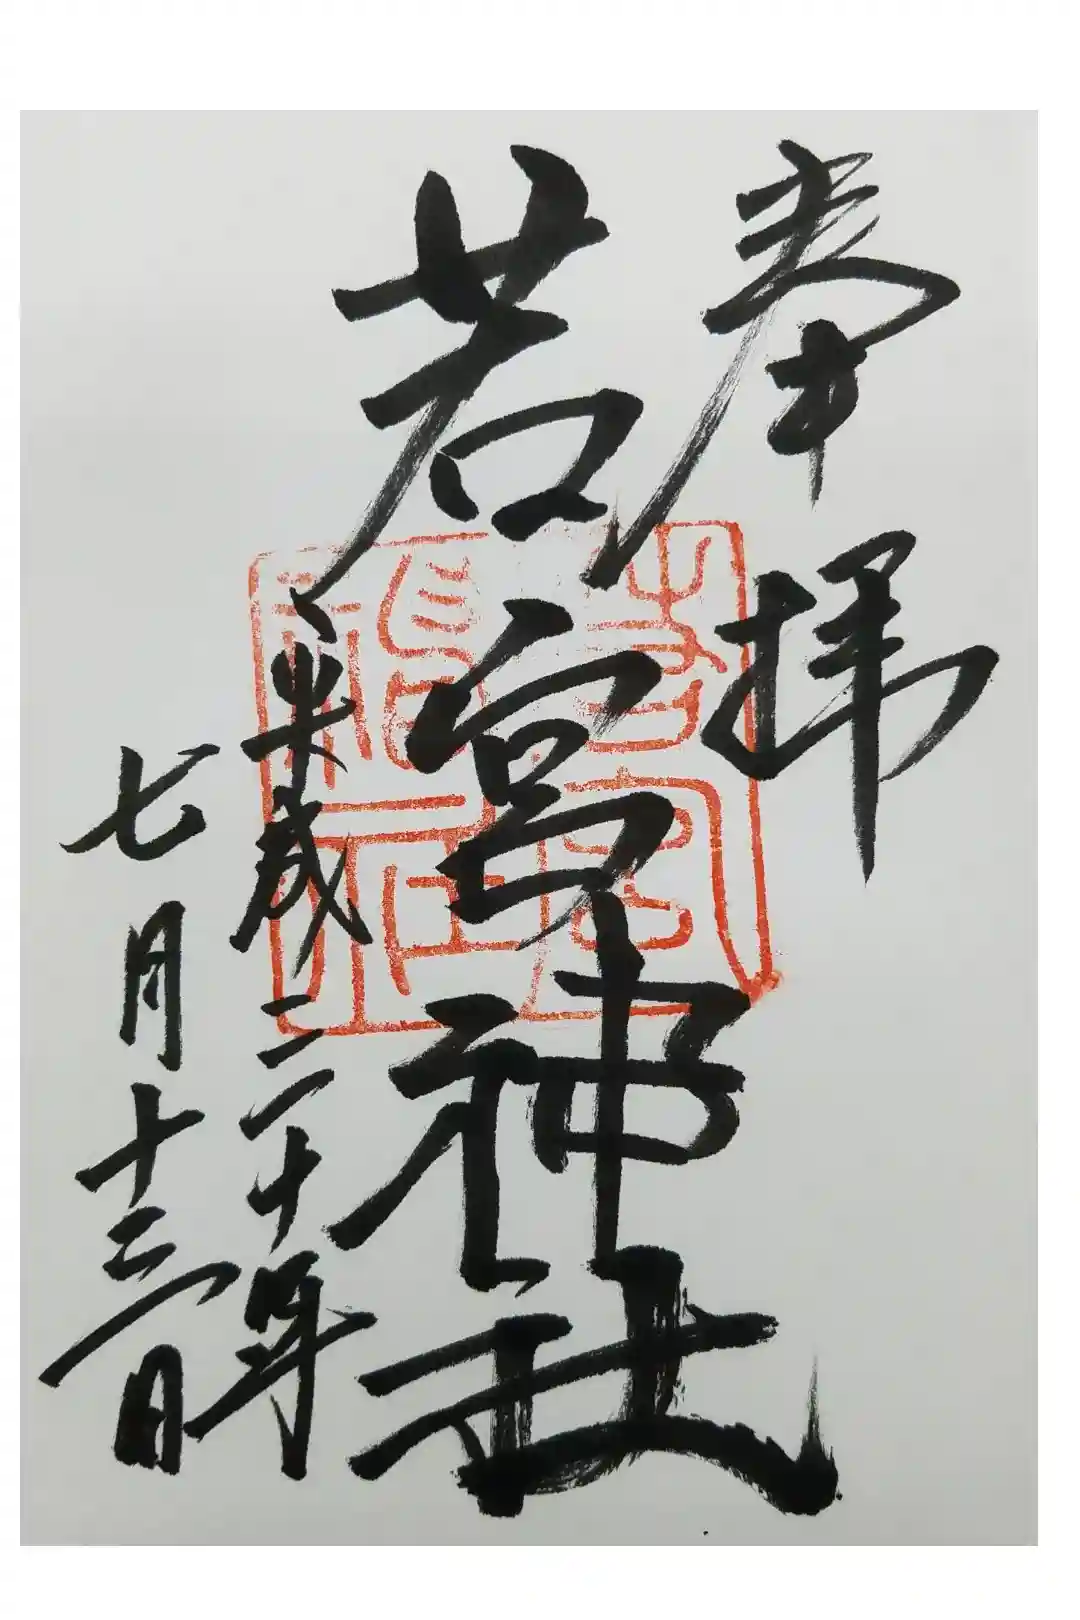 奉拝
若宮神社
平成三十年
七月十三日